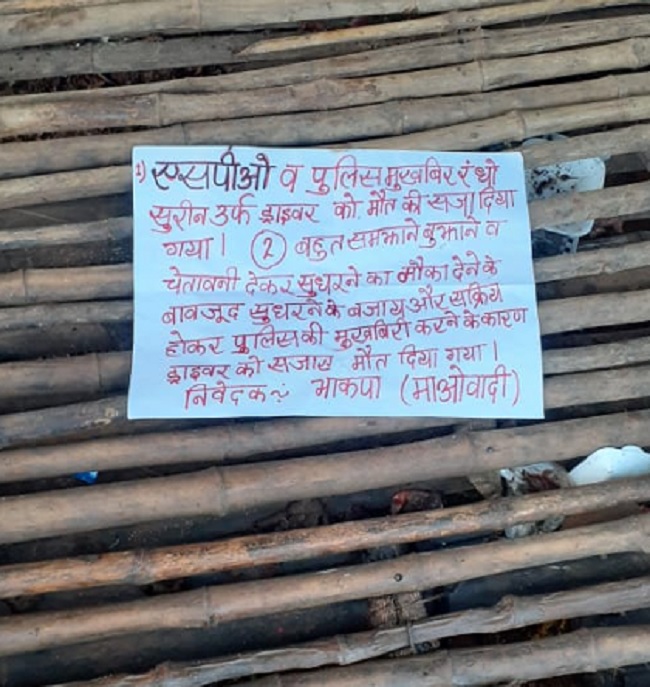 1) एसपीओ व पुलिस मुखबिर रंथो
सुरीन उर्फ ड्राइवर को मौत की सजा दिया
गया। (2) बहुत समझाने बुझाने व
चेतावनी देकर सुधरने का मौका देने के
बावजूद सुधरने के बजाय और सक्रिय
होकर पुलिस की मुखबिरी करने के कारण
ड्राइवर को सजाए मौत दिया गया।
निवेदक:~ भाकपा (माओवादी)